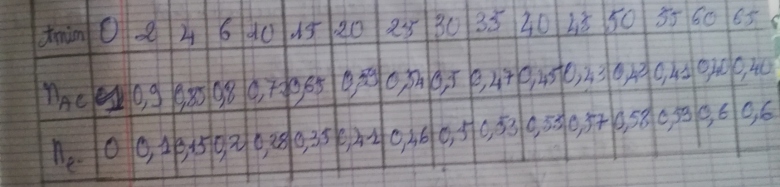 tmin 0 2 4 6 10 15 20 25 30 35 40 45 50 55 60 65
nAC 1 0,9 0,85 0,8 0,72 0,65 0,59 0,54 0,5 0,47 0,45 0,43 0,42 0,41 0,40 0,40
ne 0 0,1 0,15 0,2 0,28 0,35 0,41 0,46 0,5 0,53 0,55 0,57 0,58 0,59 0,6 0,6